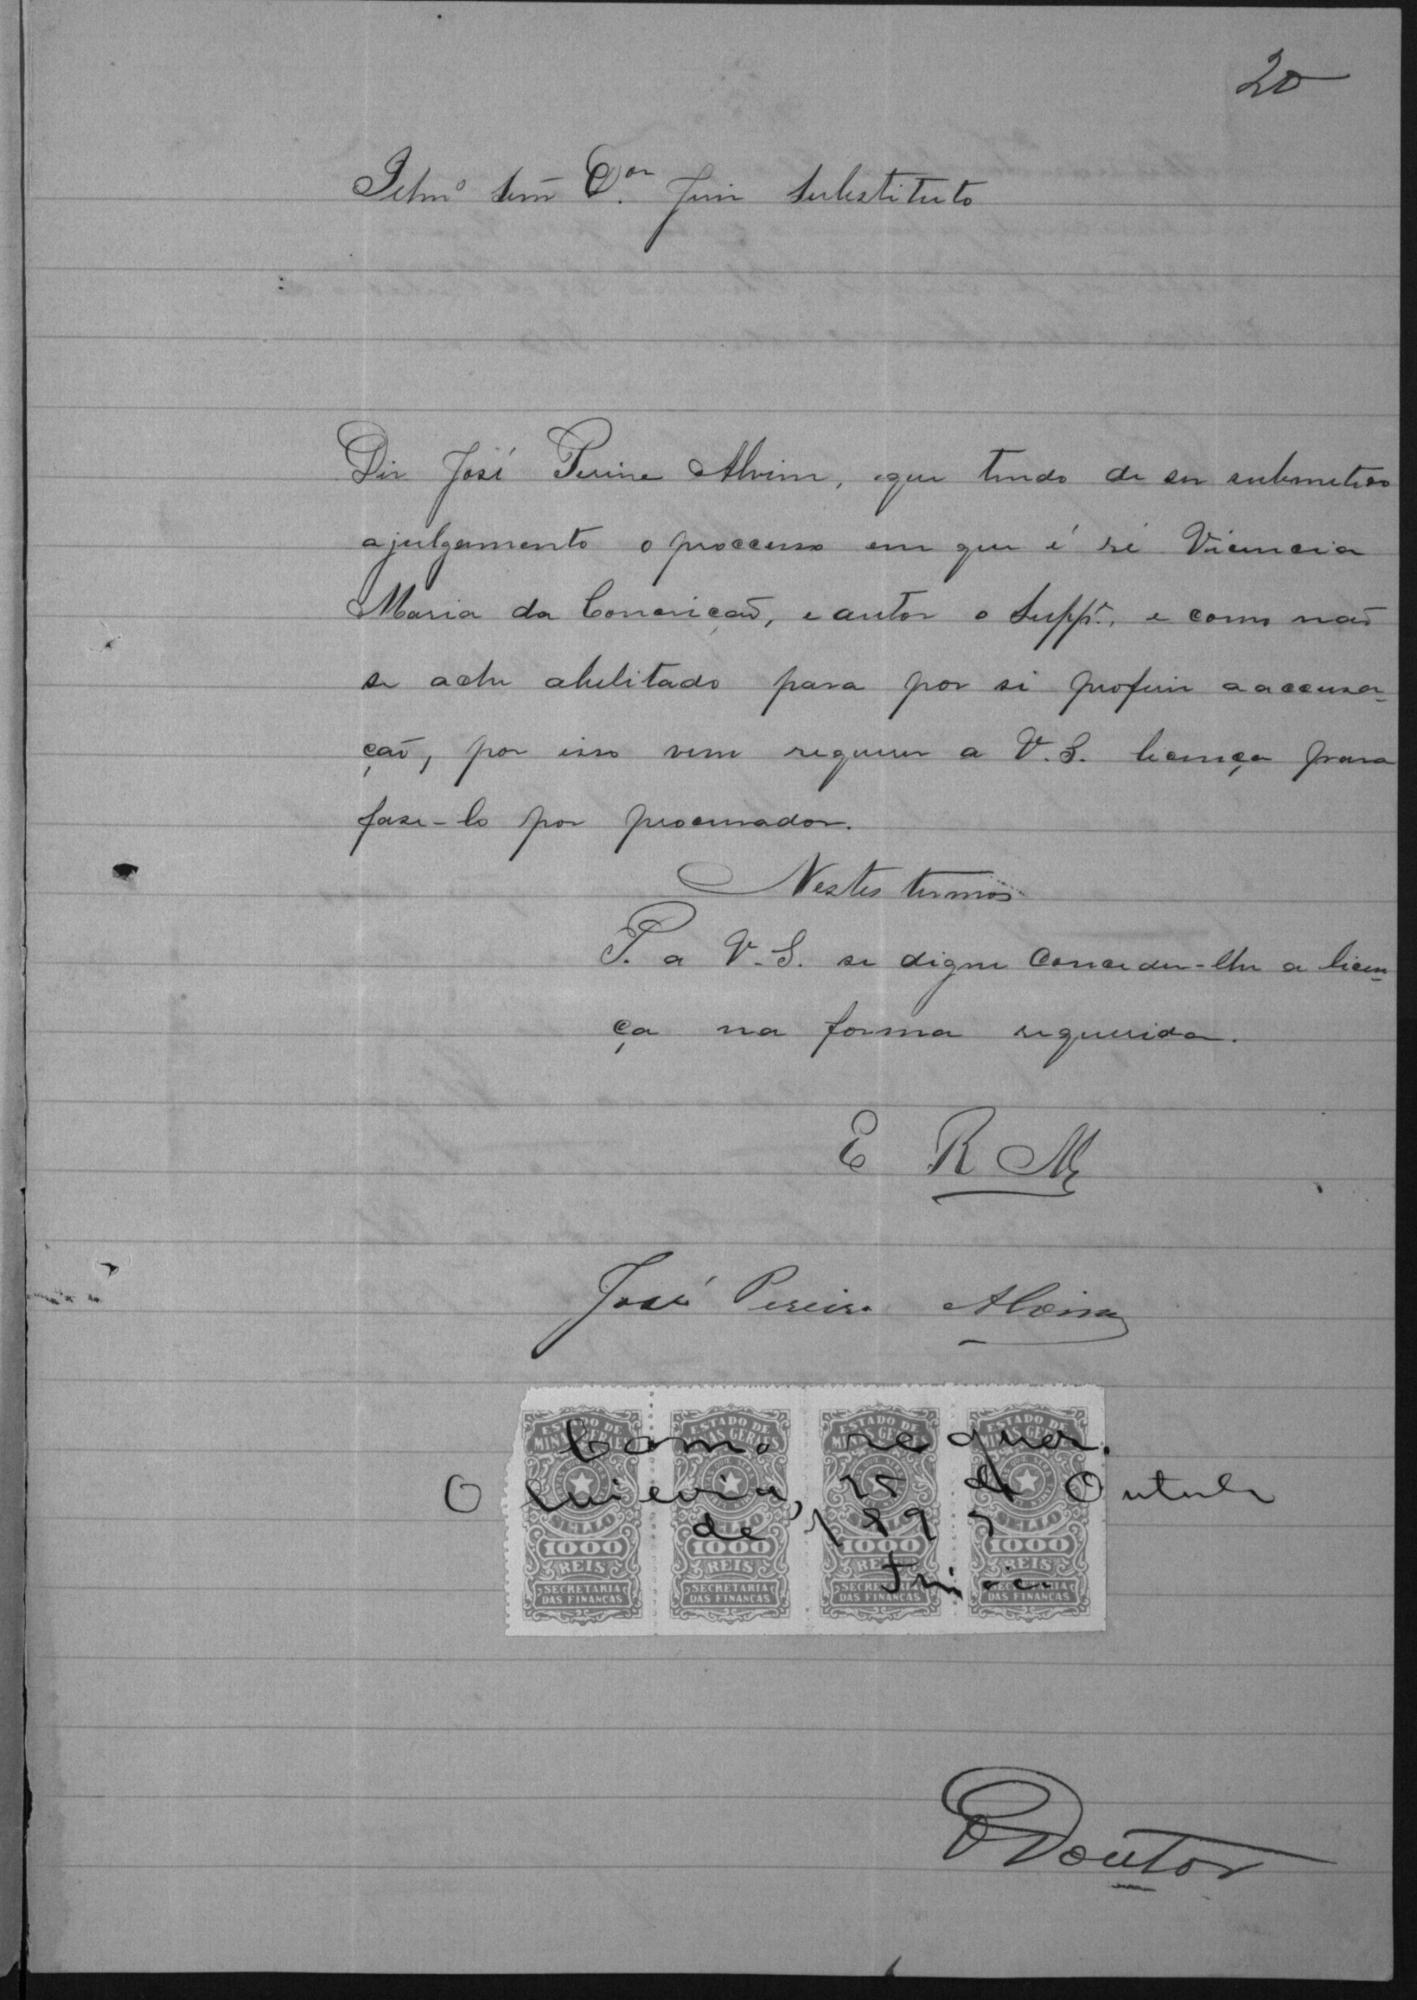 20
Illmo Senr Dor Juiz Substituto
Diz José Pereira Alvim, que tendo de ser submetido
a julgamento o processo em que é ré Vicencia
Maria da Conceição, e autor o Suppe, e como não
se ache abilitado para por si proferir a accusa-
ção, por isso vem requerer a V. S. licença para
fase-lo por procurador.
Nestes termos
P. a V. S. se digne conceder-lhe a licen-
ça na forma requerida.
E R Mce
José Pereira Alvim
Como requer.
15 de Outubro
de 1897
ESTADO DE MINAS GERAES SELLO 1000 REIS SECRETARIA DAS FINANCAS
ESTADO DE MINAS GERAES SELLO 1000 REIS SECRETARIA DAS FINANCAS
ESTADO DE MINAS GERAES SELLO 1000 REIS SECRETARIA DAS FINANCAS
ESTADO DE MINAS GERAES SELLO 1000 REIS SECRETARIA DAS FINANCAS
O Doutor